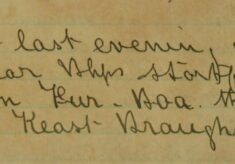 last evenin,
ar Bhps stört
n Kur-Boa. th
Keast-Braugh